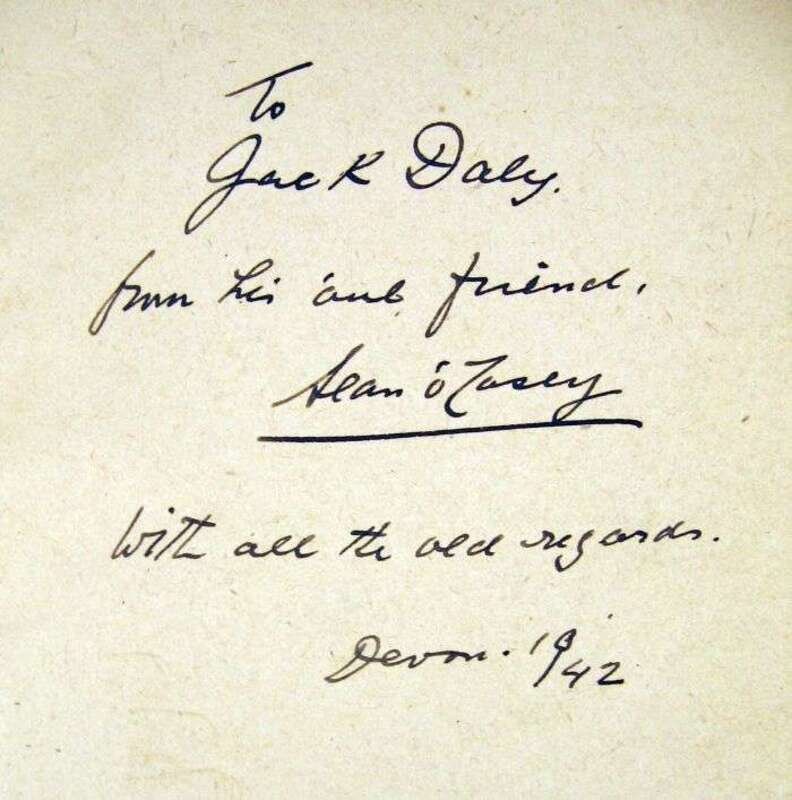 To
Jack Daly.
from his friend,
Sean O'Casey
With all the old regards.
Devon. 1942